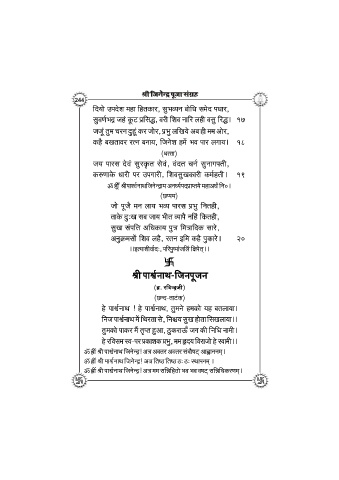 श्री जिनेन्द्र पूजा संग्रह
244
दियो उपदेश महा हितकार, सुभव्यन बोधि समेद पधार,
सुवर्णभद्र जहं कूट प्रसिद्ध, वरी शिव नारि लही वसु रिद्ध। १७
जजूं तुम चरन दुहूं कर जोर, प्रभु लखिये अब ही मम ओर,
कहै बखतावर रत्न बनाय, जिनेश हमें भव पार लगाय। १८
(धत्ता)
जय पारस देवं सुरकृत सेवं, वंदत चर्न सुनागपती,
करुणाके धारी पर उपगारी, शिवसुखकारी कर्महती। १९
ॐ ह्रीं श्रीपार्श्वनाथजिनेन्द्राय अनर्घ्यपदप्राप्तये महाअर्घं नि०।
(छप्पय)
जो पूजै मन लाय भव्य पारस प्रभु नितही,
ताके दुःख सब जाय भीत व्यापै नहिं कितही,
सुख संपति अधिकाय पुत्र मित्रादिक सारे,
अनुक्रमसों शिव लहै, रतन इमि कहै पुकारे। २०
।।इत्याशीर्वादः, परिपुष्पांजलिं क्षिपेत्।।
卐
श्री पार्श्वनाथ-जिनपूजन
(ब्र. रविन्द्रजी)
(छन्द-ताटंक)
हे पार्श्वनाथ ! हे पार्श्वनाथ, तुमने हमको यह बतलाया।
निज पार्श्वनाथ में थिरता से, निश्चय सुख होता सिखलाया।।
तुमको पाकर मैं तृप्त हुआ, ठुकराऊँ जग की निधि नामी।
हे रविसम स्व-पर प्रकाशक प्रभु, मम हृदय विराजो हे स्वामी।।
ॐ ह्रीं श्री पार्श्वनाथ जिनेन्द्र! अत्र अवतर अवतर संवौषट् आह्वाननम्।
ॐ ह्रीं श्री पार्श्वनाथ जिनेन्द्र! अत्र तिष्ठ तिष्ठ ठः ठः स्थापनम्।
ॐ ह्रीं श्री पार्श्वनाथ जिनेन्द्र! अत्र मम सन्निहितो भव भव वषट् सन्निधिकरणम्।